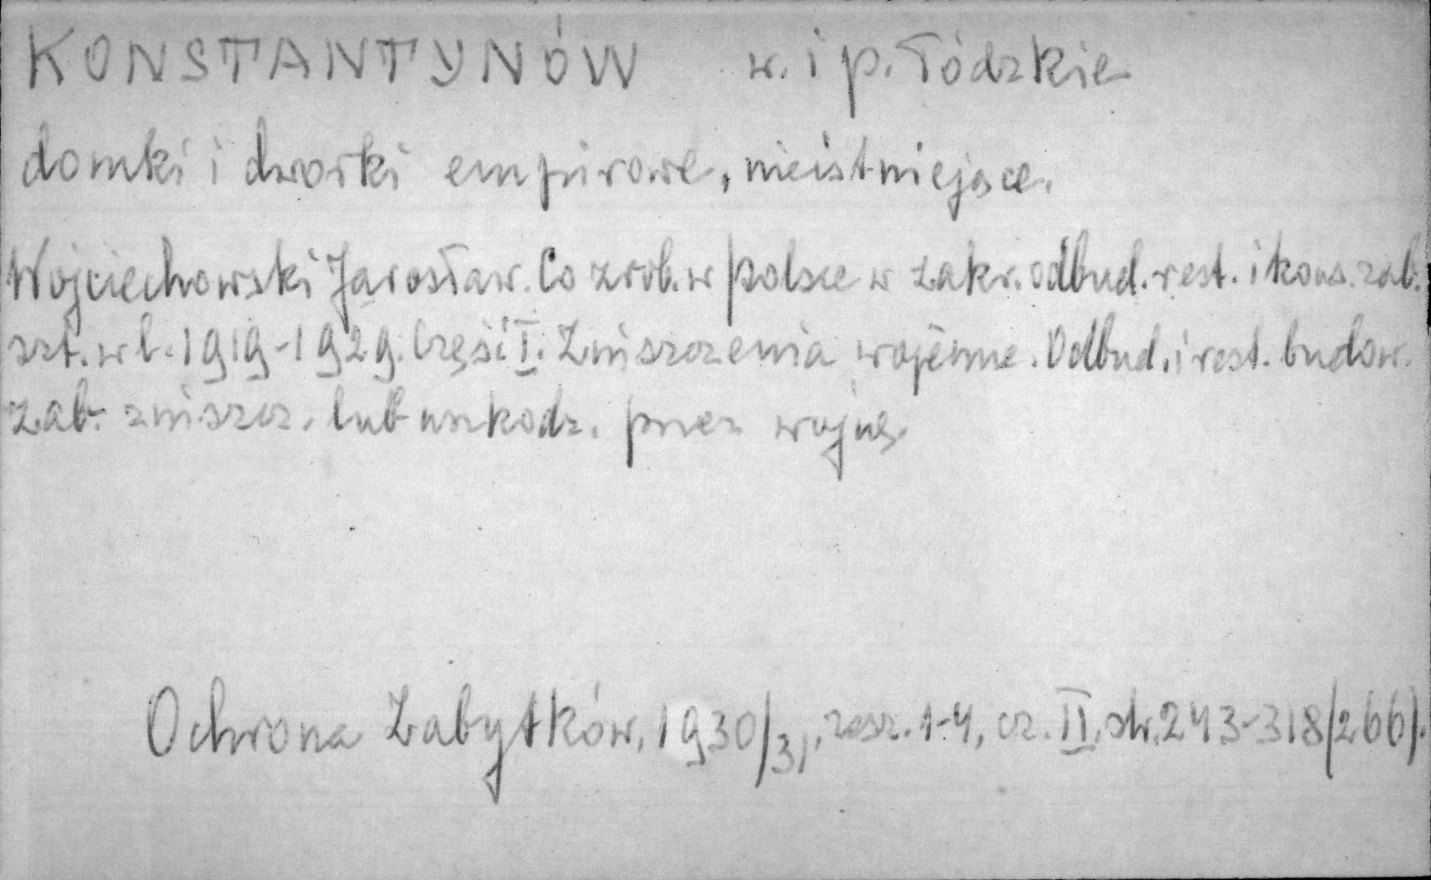 KONSTANTYNÓW w. i p. Łódzkie
domki i dworki empirowe, nieistniejące.
Wojciechowski Jarosław. Co zrob. w Polsce w zakr. odbud. rest. i kons. zab.
szt. w l. 1919-1929. Część I. Zniszczenia wojenne. Odbud. i rest. budow.
zab. zniszcz. lub uszkodz. przez wojnę.
Ochrona Zabytków, 1930/31, zesz. 1-4, cz. II, str. 243-318 (266).